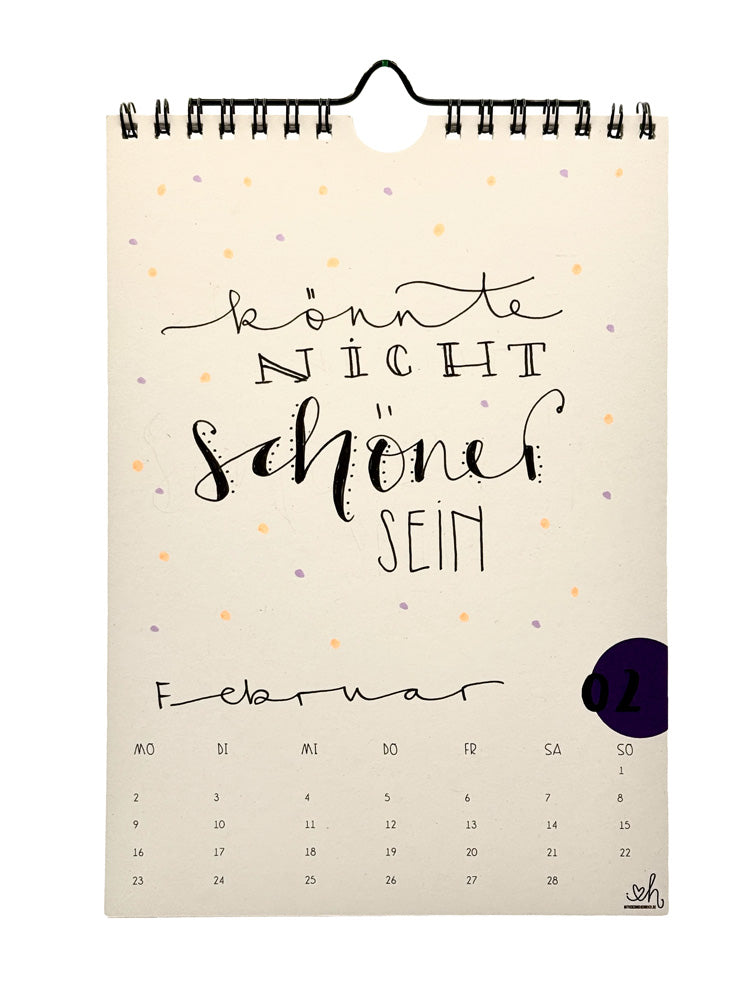 könnte
NICHT
schöner
SEIN
Februar
02
MO DI MI DO FR SA SO
1
2 3 4 5 6 7 8
9 10 11 12 13 14 15
16 17 18 19 20 21 22
23 24 25 26 27 28